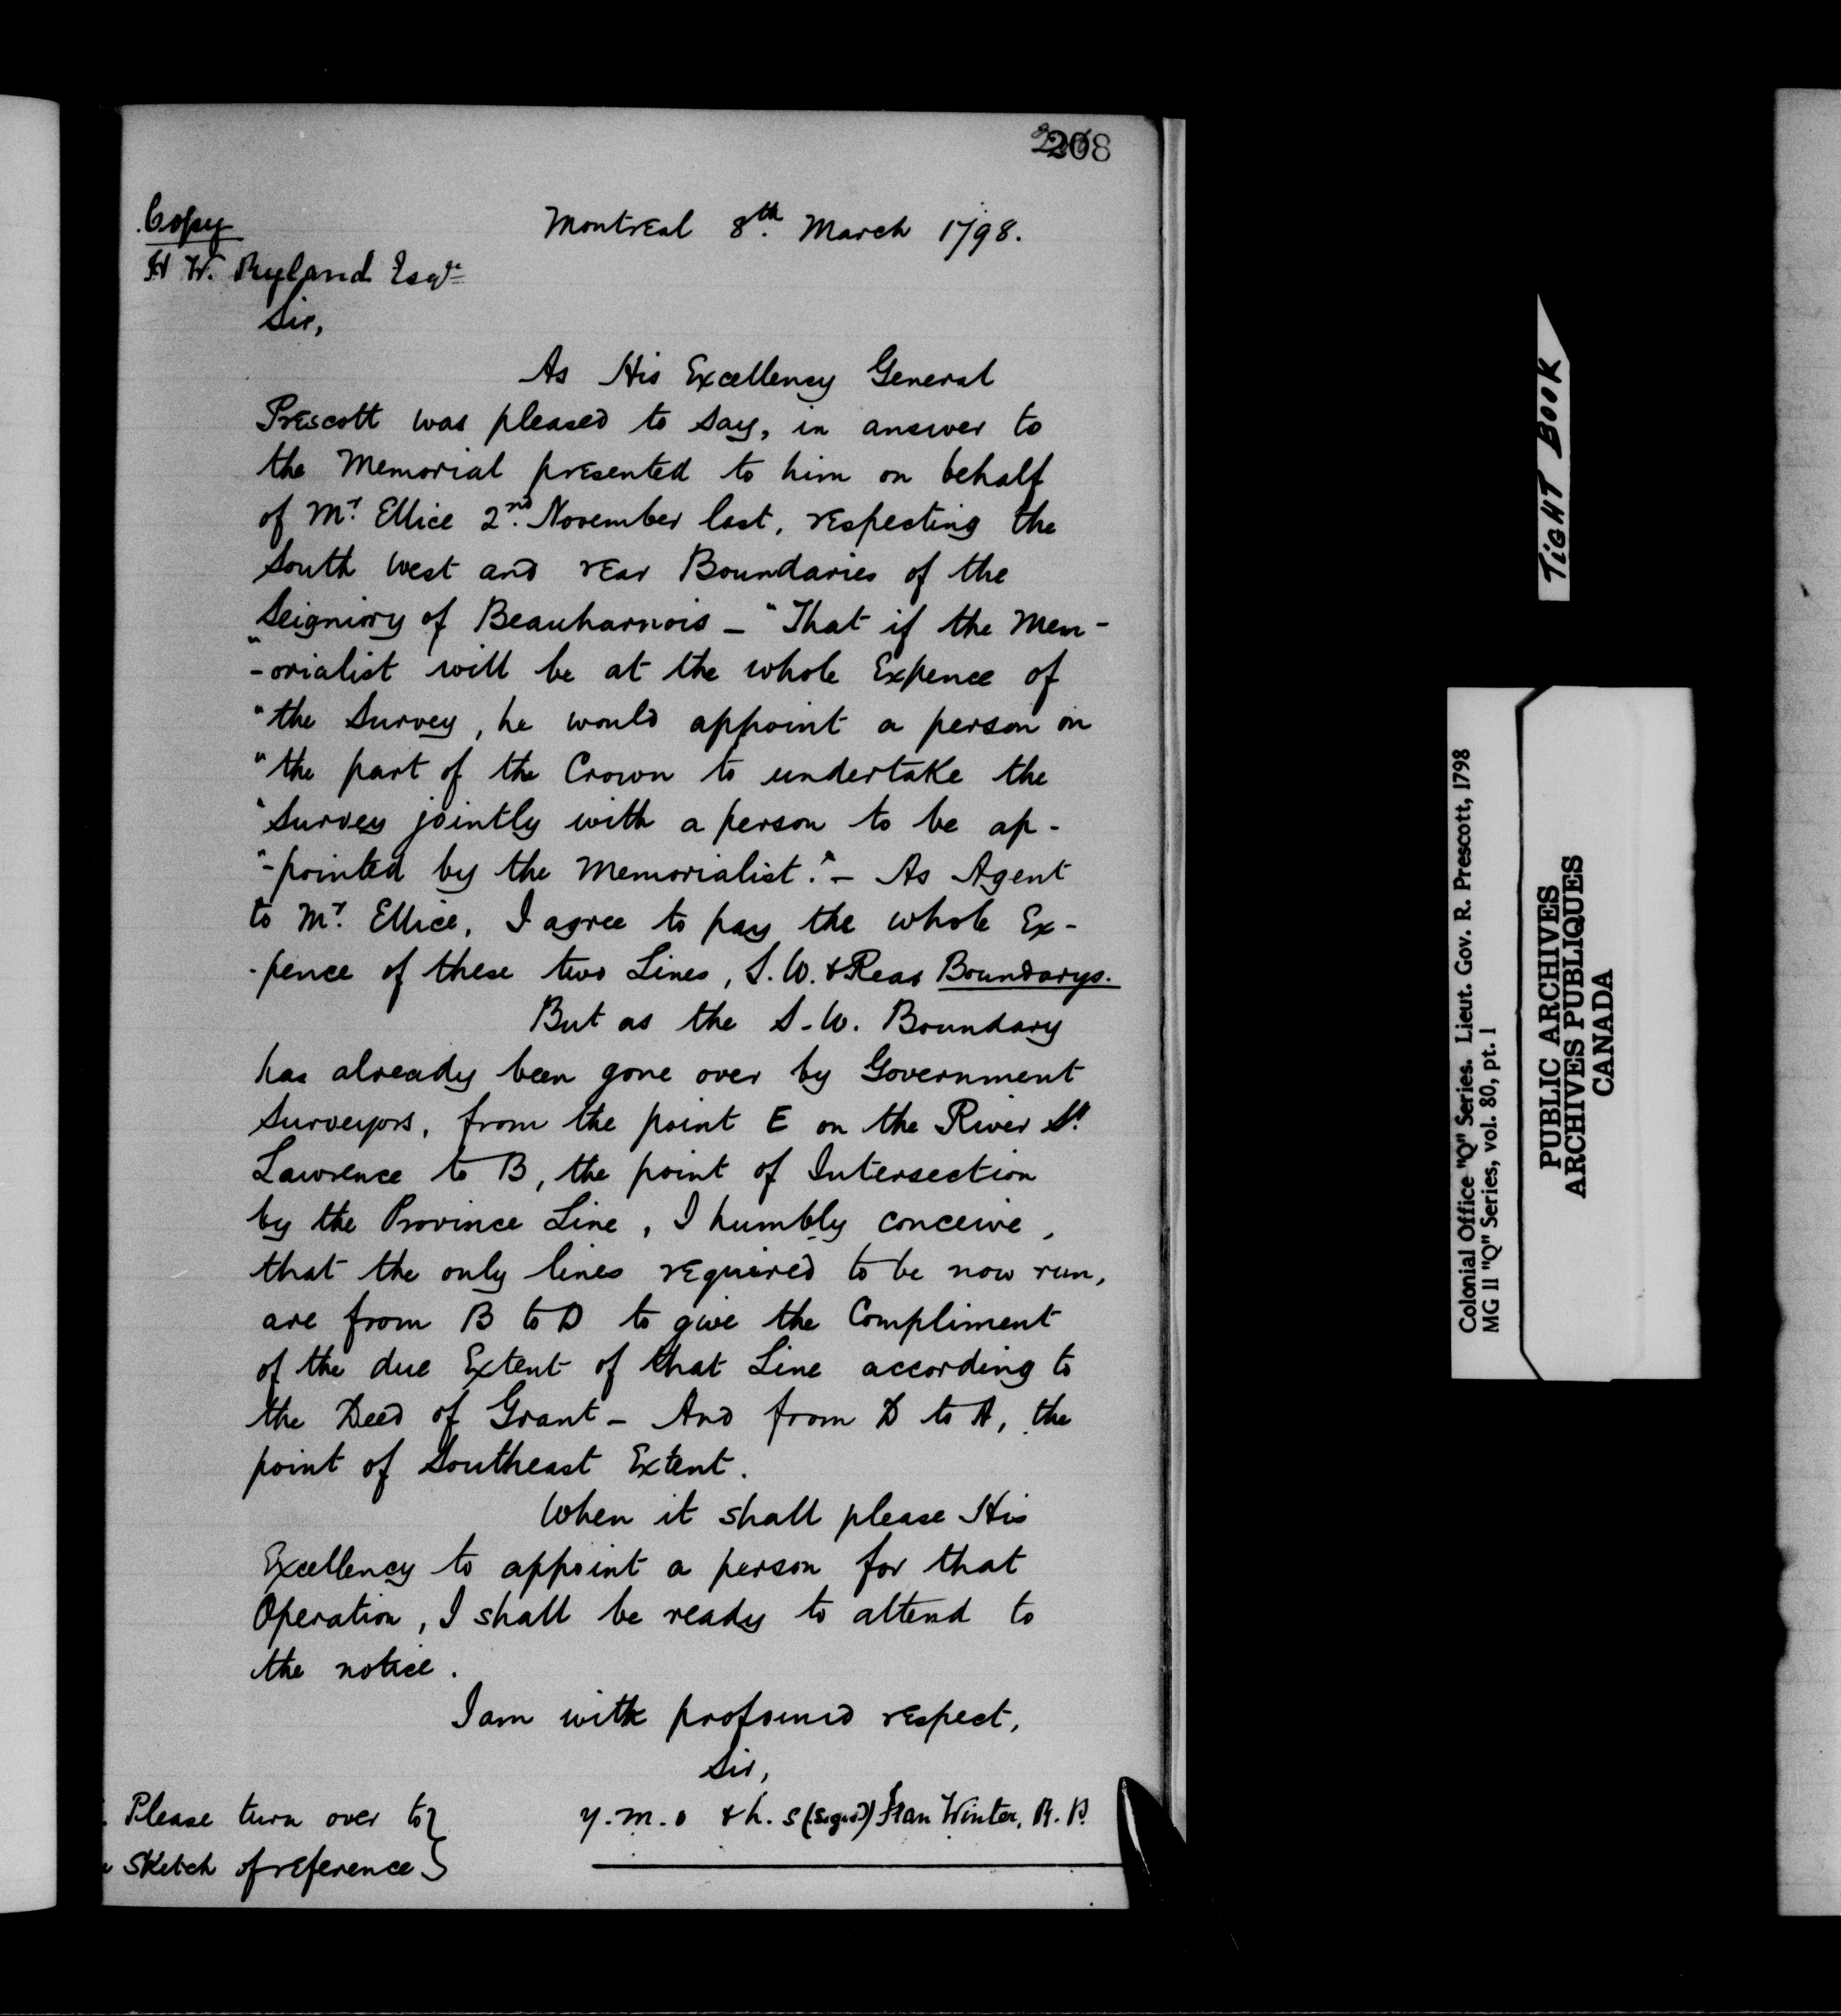 208
Copy
Montreal 8th. March 1798.
H W. Ryland Esqre
Sir,
As His Excellency General
Prescott was pleased to say, in answer to
the Memorial presented to him on behalf
of Mr. Ellice 2nd. November last, respecting the
South West and rear Boundaries of the
Seigniory of Beauharnois – "That if the Mem-
"-orialist will be at the whole Expence of
"the Survey, he would appoint a person on
"the part of the Crown to undertake the
"Survey jointly with a person to be ap-
"-pointed by the Memorialist." – As Agent
to Mr. Ellice, I agree to pay the whole Ex-
-pence of these two Lines, S.W. & Rear Boundarys.
But as the S.W. Boundary
has already been gone over by Government
Surveyors, from the point E on the River St.
Lawrence to B, the point of Intersection
by the Province Line, I humbly conceive,
that the only lines required to be now run,
are from B to D to give the Compliment
of the due Extent of that Line according to
the Deed of Grant – And from D to A, the
point of Southeast Extent.
When it shall please His
Excellency to appoint a person for that
Operation, I shall be ready to attend to
the notice.
I am with profound respect,
Sir,
y. m. o & h. s (signed) Fran Winter, R. P.
Please turn over to
Sketch of reference
TIGHT BOOK
Colonial Office "Q" Series. Lieut. Gov. R. Prescott, 1798
MG 11 "Q" Series, vol. 80, pt. 1
PUBLIC ARCHIVES
ARCHIVES PUBLIQUES
CANADA